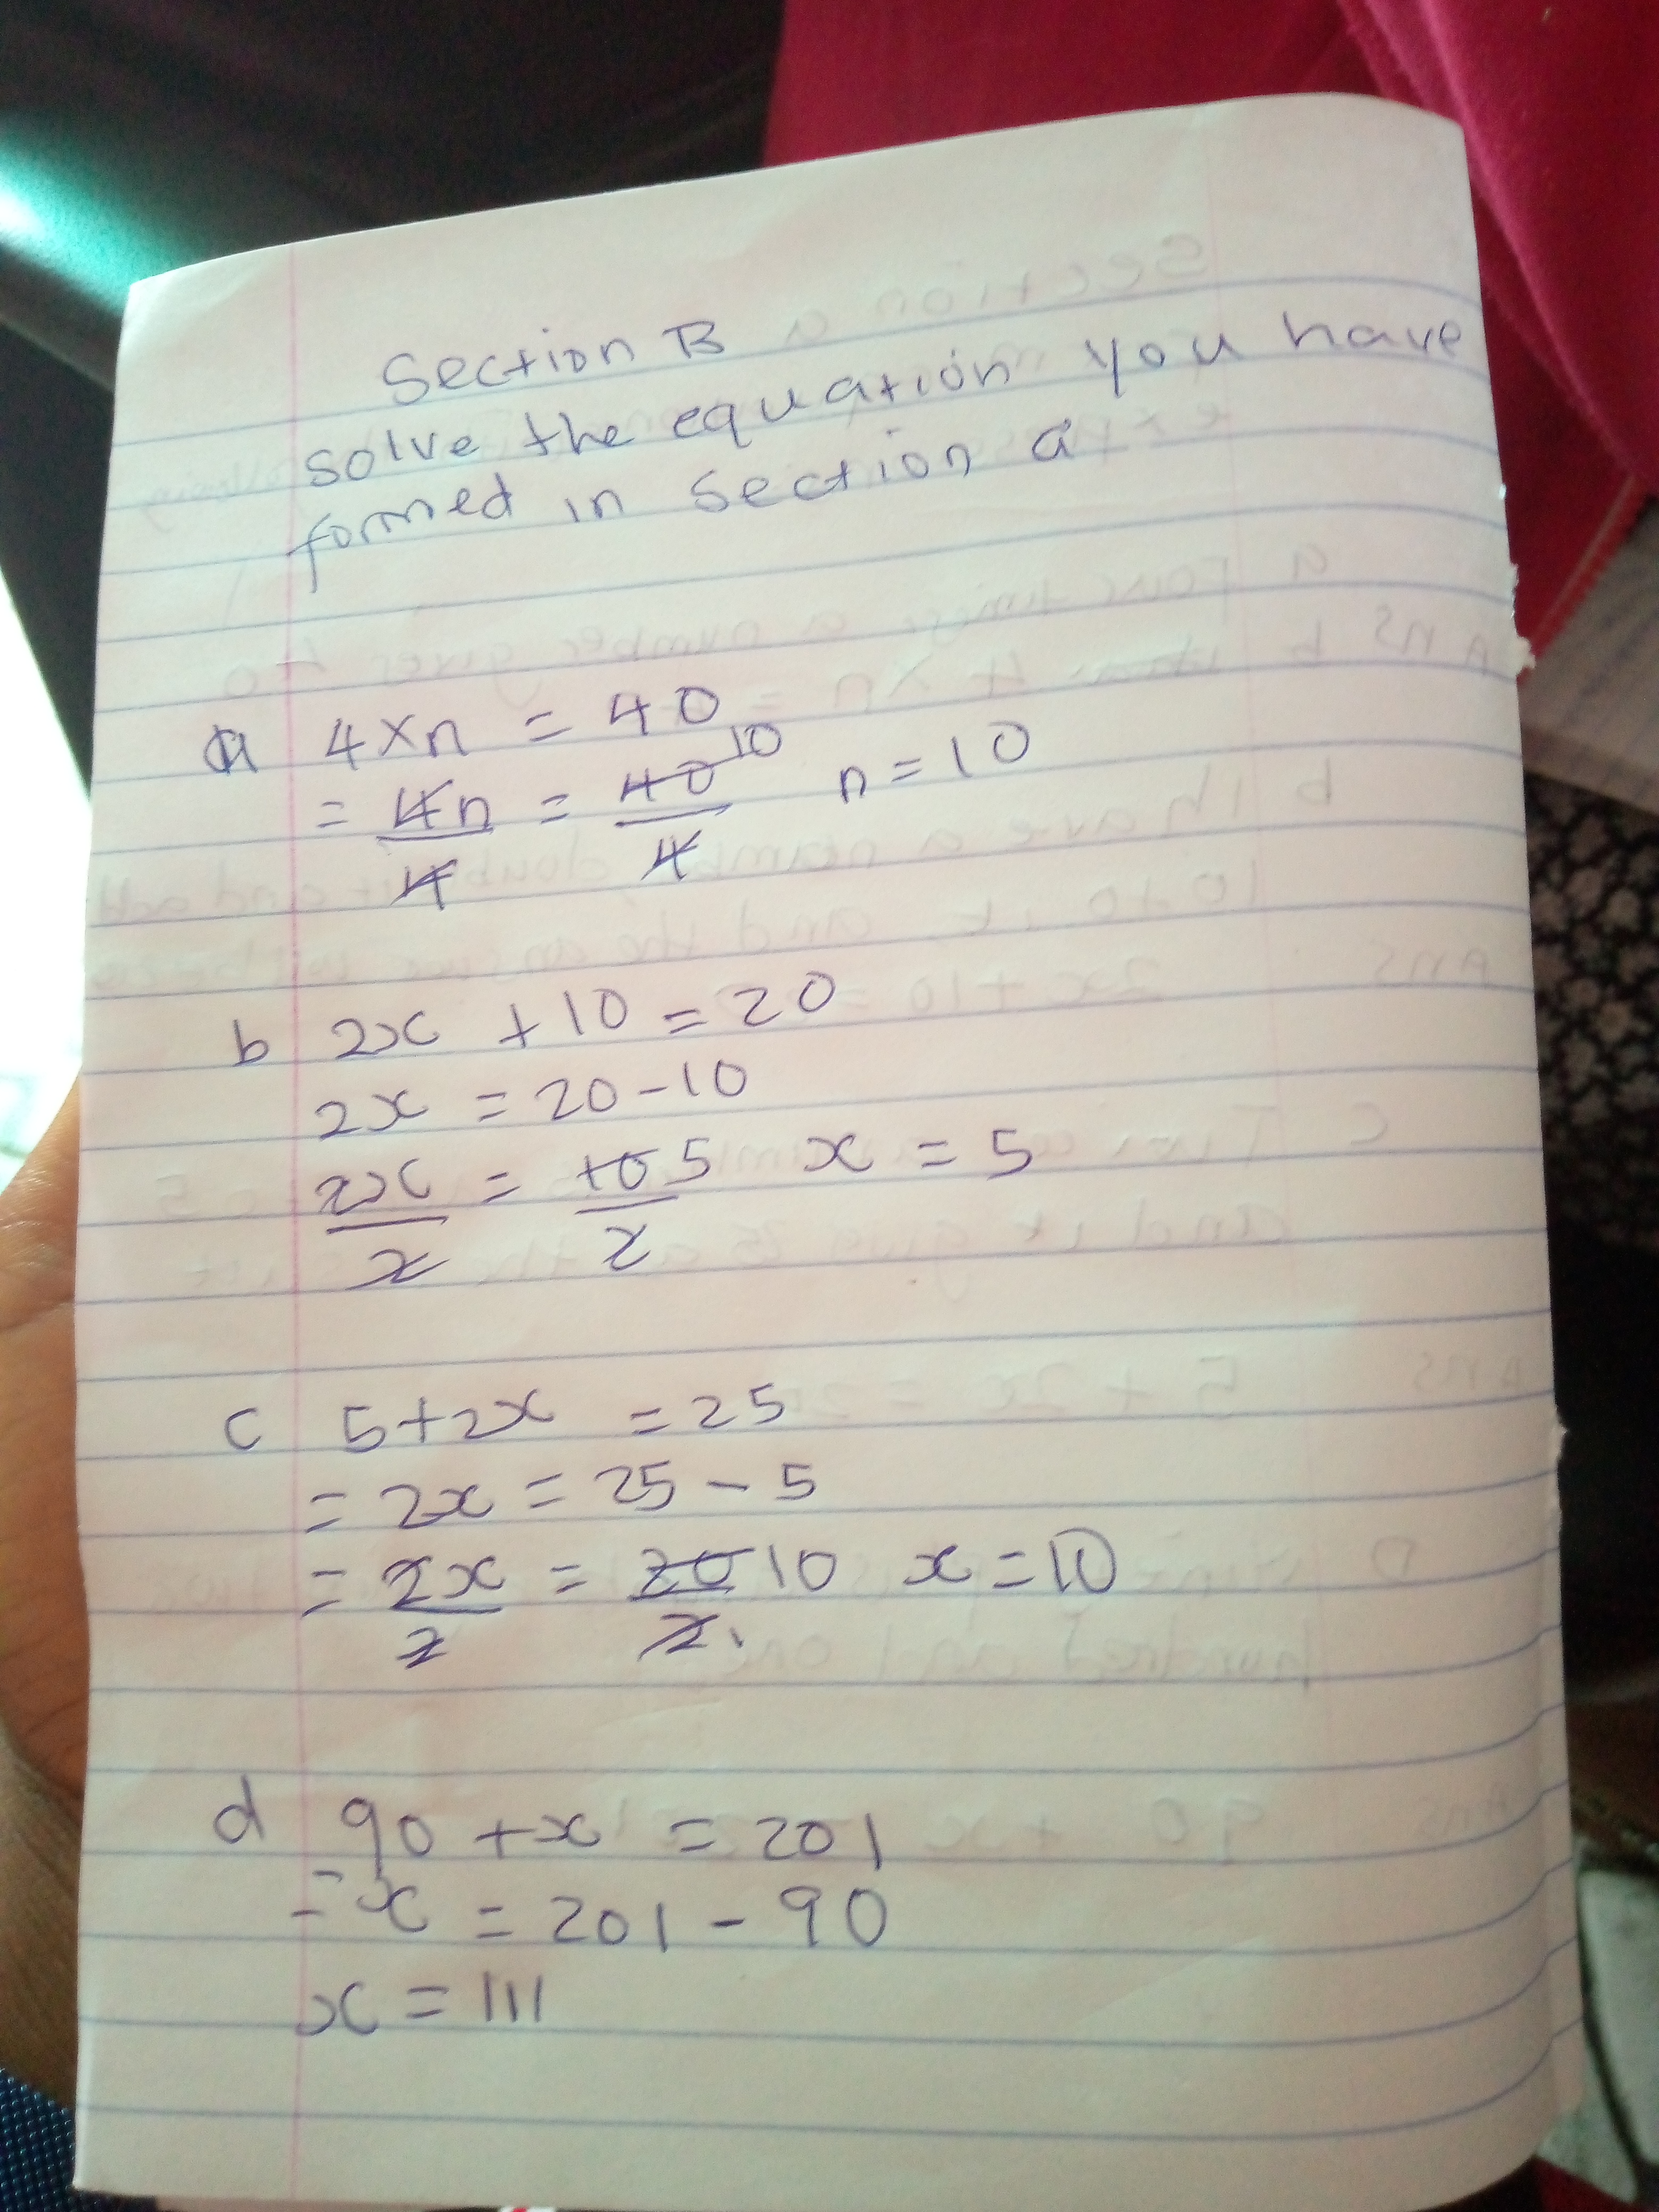 Section B
solve the equation you have
formed in section a
a 4×n = 40
= 4n/4 = 40/4 10 n = 10
b 2x + 10 = 20
2x = 20 - 10
2x/2 = 10/2 5 x = 5
c 5 + 2x = 25
= 2x = 25 - 5
= 2x/2 = 20/2 10 x = 10
d 90 + x = 201
= x = 201 - 90
x = 111